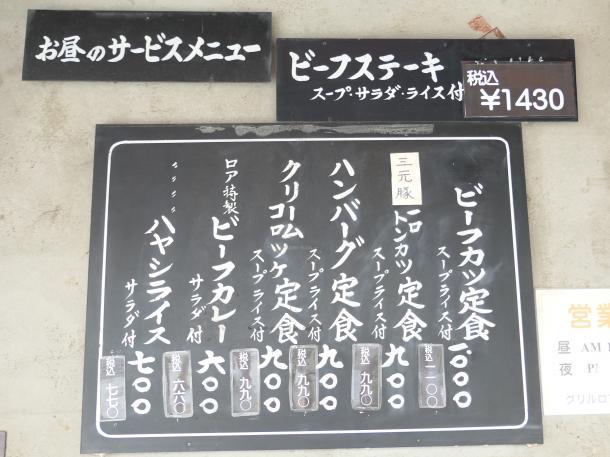 お昼のサービスメニュー
ビーフステーキ
スープ・サラダ・ライス付
税込
¥1430
ビーフカツ定食
スープライス付
一、〇〇〇
税込 一一〇〇
三元豚
一口トンカツ定食
スープライス付
九〇〇
税込 九九〇
ハンバーグ定食
スープライス付
九〇〇
税込 九九〇
クリームコロッケ定食
スープライス付
九〇〇
税込 九九〇
ロア特製
ビーフカレー
サラダ付
六〇〇
税込 六六〇
〃 〃 〃 〃
ハヤシライス
サラダ付
七〇〇
税込 七七〇
営業
昼 AM
夜 P
グリルロ